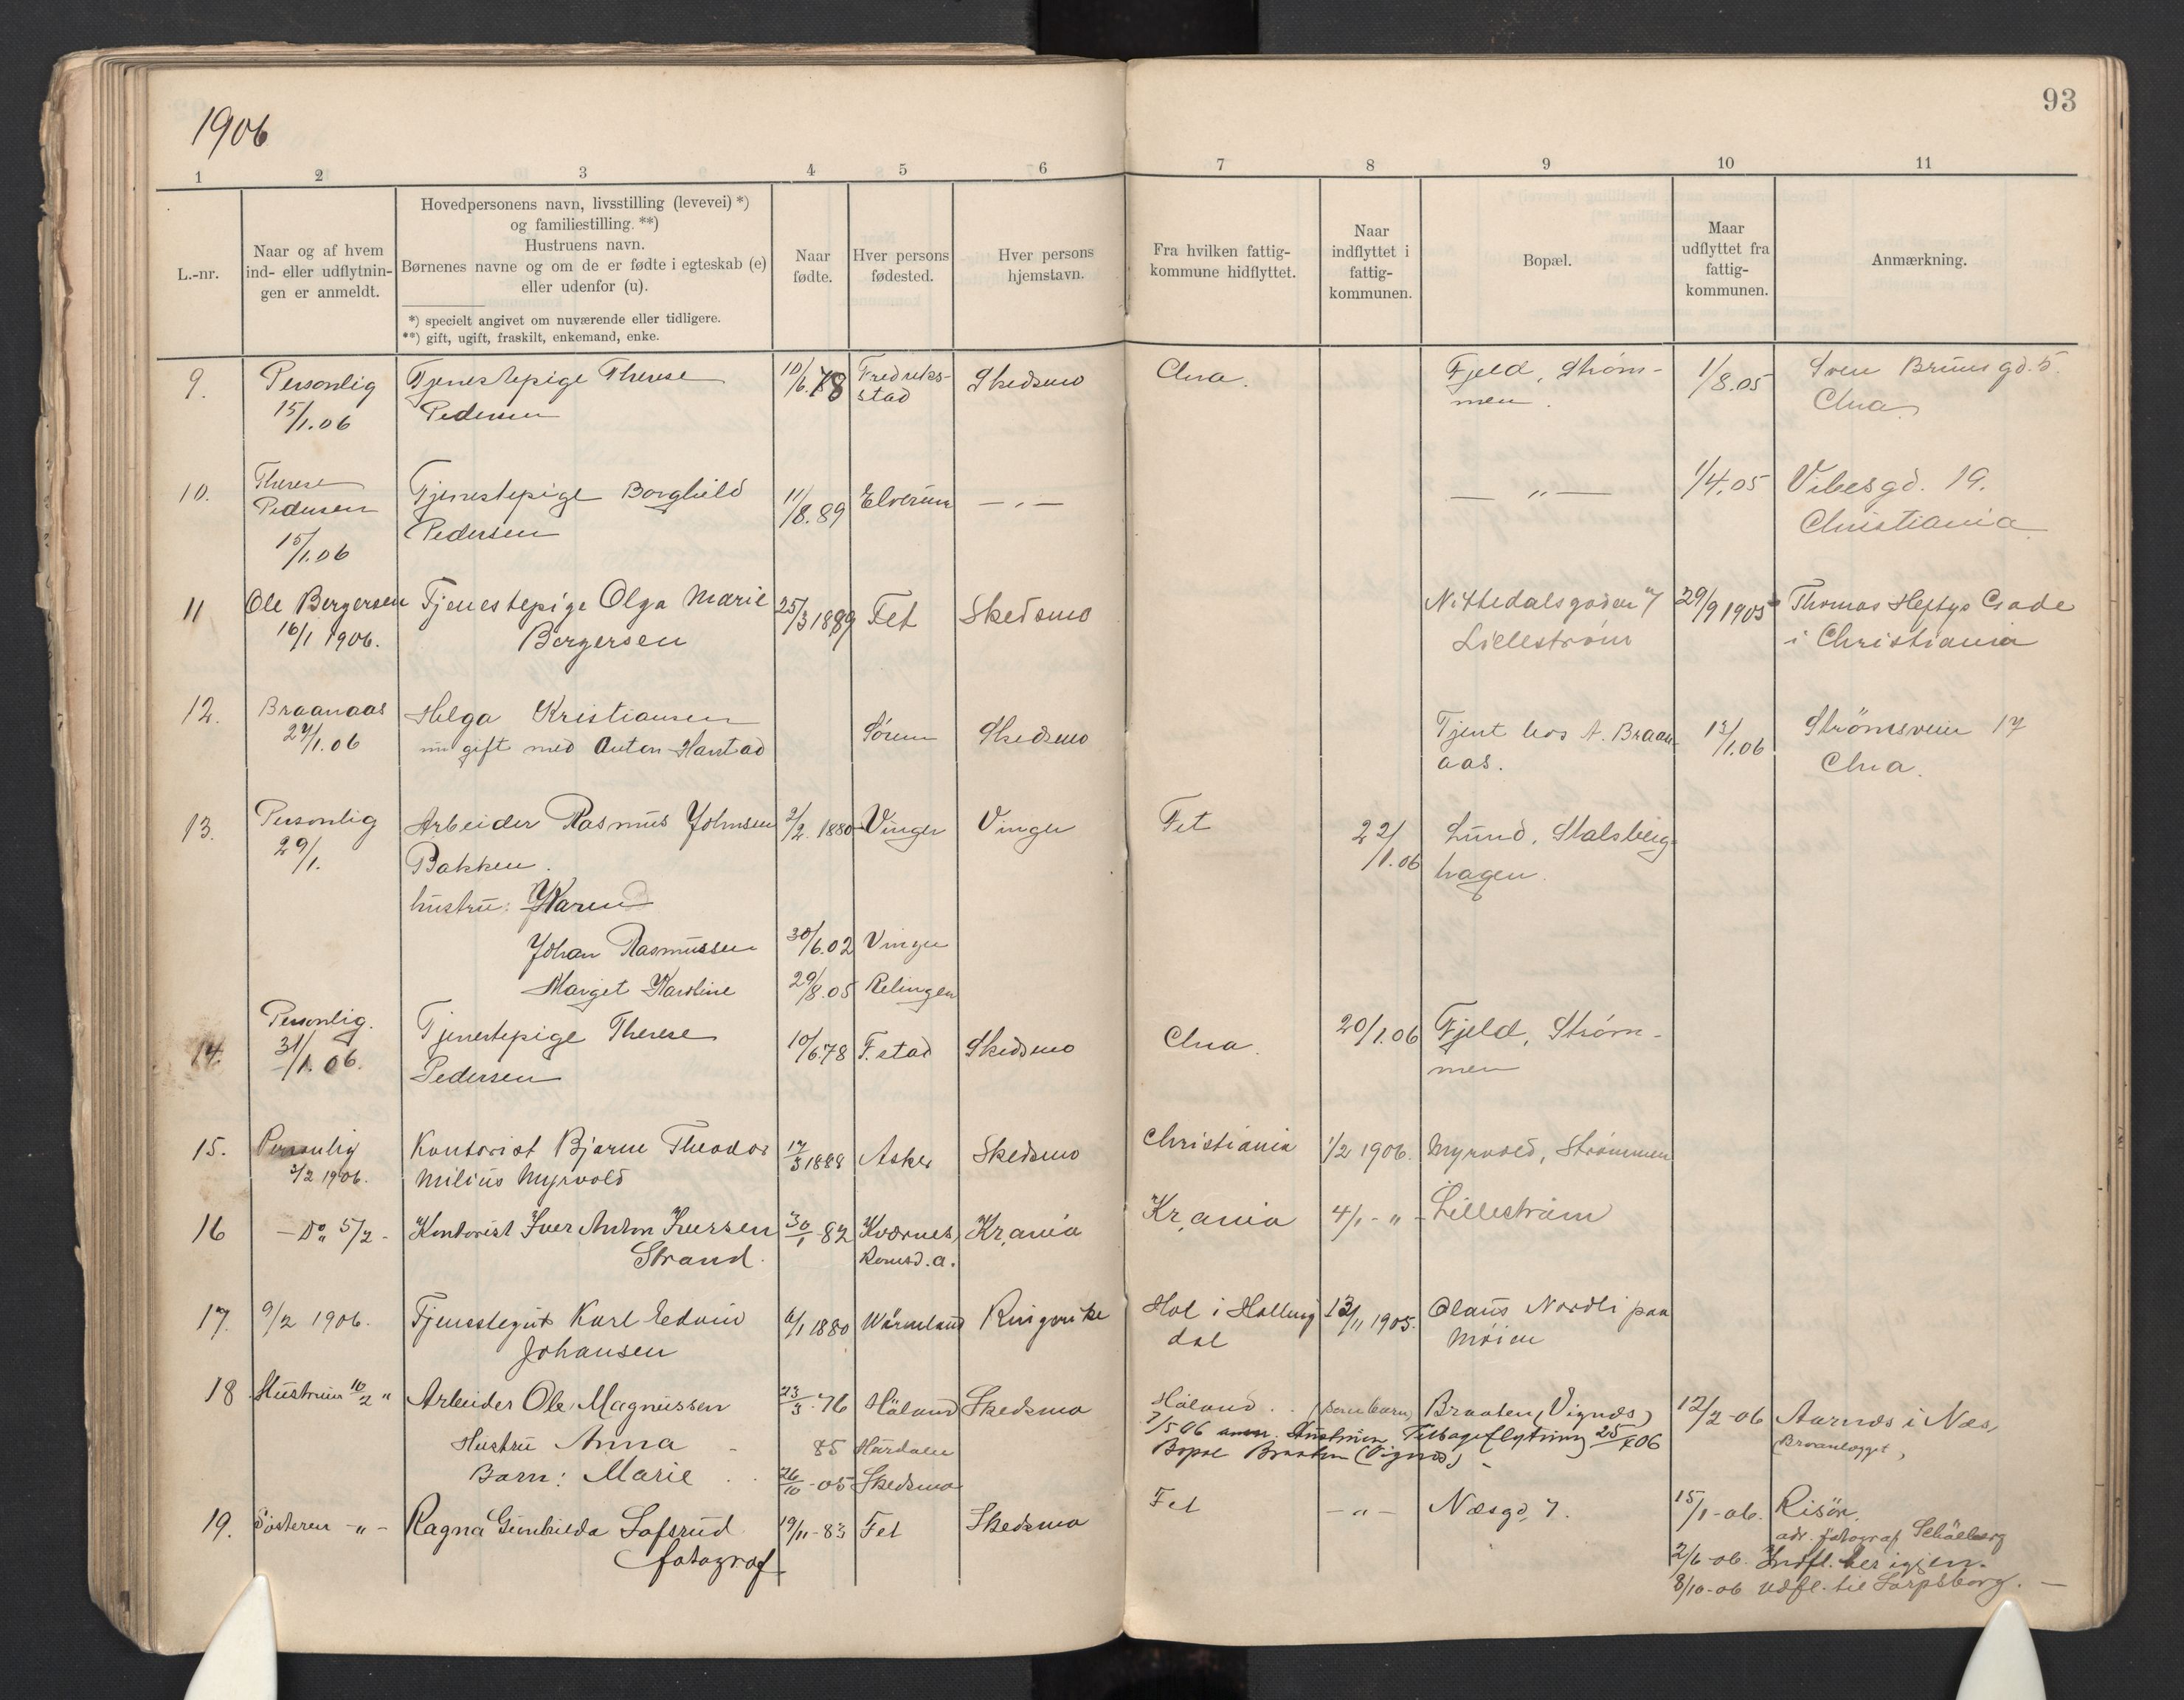 1906
93
1 2 3 4 5 6 7 8 9 10 11
L.-nr.
Naar og af hvem
ind- eller udflytnin-
gen er anmeldt.
Hovedpersonens navn, livsstilling (levevei) *)
og familiestilling. **)
Hustruens navn.
Børnenes navne og om de er fødte i egteskab (e)
eller udenfor (u).
*) specielt angivet om nuværende eller tidligere.
**) gift, ugift, fraskilt, enkemand, enke.
Naar
fødte.
Hver persons
fødested.
Hver persons
hjemstavn.
Fra hvilken fattig-
kommune hidflyttet.
Naar
indflyttet i
fattig-
kommunen.
Bopæl.
Maar
udflyttet fra
fattig-
kommunen.
Anmærkning.
9. Personlig Tjenestepige Therese 10/6.78 Fredriks- Skedsmo Chra. Fjeld, Strøm- 1/8.05 Sven Bruns gd. 5.
15/1.06 Pedersen stad men. Chra.
10. Therese Tjenestepige Borghild 11/8.89 Elverum — „ — — „ — 1/4.05 Vibesgd. 19.
Pedersen Pedersen Christiania
15/1.06
11 Ole Bergersen Tjenestepige Olga Marie 25/3 1889 Fet Skedsmo Nittedalsgaden 7 29/9 1905 Thomas Heftys Gade
16/1 1906. Bergersen Lillestrøm i Christiania
12. Braanaas Helga Kristiansen Sørum Skedsmo Tjent hos A. Braan- 13/1.06 Strömsveien 17
27/1.06 nu gift med Anton Harstad aas. Chra.
13. Personlig Arbeider Rasmus Johnsen 2/2. 1880 Vinger Vinger Fet 22/1.06 Lund, Stalsberg-
29/1. Bakken. hagen.
hustru: Karen
Johan Rasmussen 30/6.02 Vinger
Marget Karoline 29/8.05 Relingen
14. Personlig. Tjenestepige Therese 10/6.78 F.stad Skedsmo Chra. 20/1.06 Fjeld, Strøm-
31/1.06. Pedersen men
15. Personlig Kontorist Bjarne Theodor 17/3 1888 Asker Skedsmo Christiania 1/2 1906. Myrvold, Strømmen
3/2 1906. Milius Myrvold
16 — Do 5/2 - Kontorist Iver Anton Iversen 30/1 82 Kværnes, Kr.ania Kr.ania 4/1 - „ - Lillestrøm
Strand. Romsd.a.
17. 9/2 1906. Tjenestegut Karl Edvin 6/1 1880 Wärmland Ringerike Hol i Halling 13/11 1905. Olaus Nordli paa
Johansen dal Moien
18 Hustruen 10/2 „ Arbeider Ole Magnussen 23/3.76 Höland Skedsmo Höland . . (som barn) Braaten (Vignæs) 12/2-06 Aarnæs i Næs,
7/5 06 anm. Hustruen Tilbageflytning 25/4 06
Hustru Anna - 85 Hurdalen Bopæl Braaten (Vignæs) -
Barn: Marie . . 26/10-05 Skedsmo
19. Søsteren - „ - Ragna Gunhilda Lofsrud 19/11-83 Fet Skedsmo Fet - „ - Næsgd. 7. 15/1-06. Risör.
fotograf adr. fotograf
2/6-06. Indfl. her igjen.
8/10-06 Udfl. til Sarpsborg. —